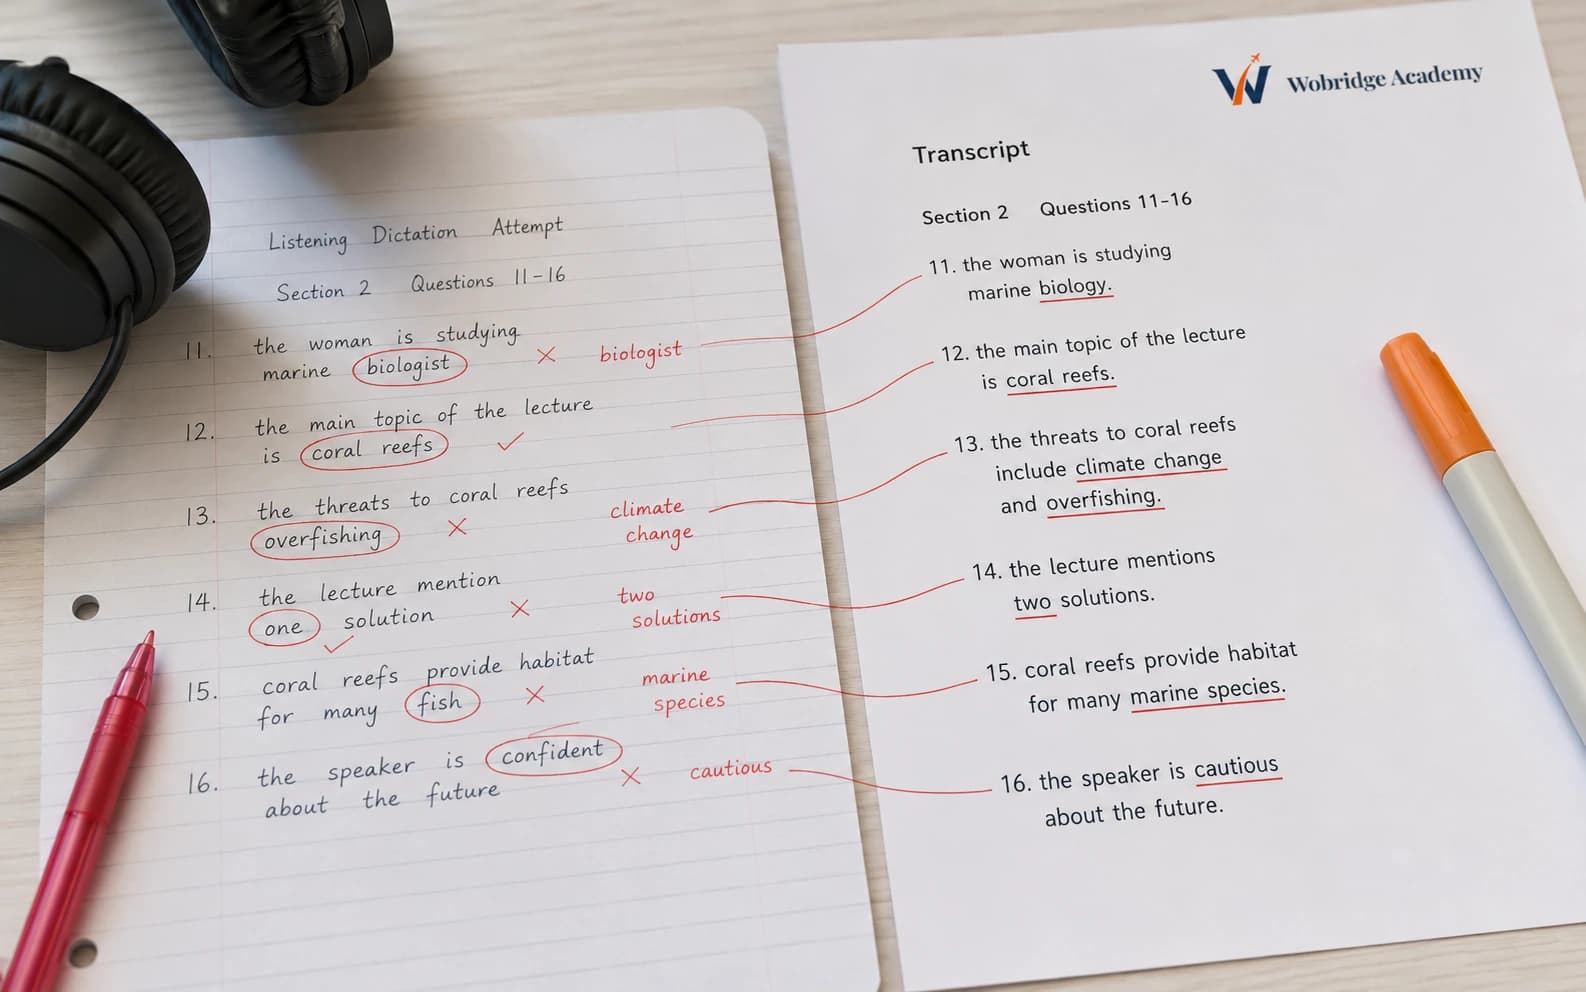 Listening Dictation Attempt
Section 2 Questions 11-16
11. the woman is studying
marine biologist × biologist
12. the main topic of the lecture
is coral reefs ✓
13. the threats to coral reefs
overfishing × climate
change
14. the lecture mention
one solution × two
solutions
✓
15. coral reefs provide habitat
for many fish × marine
species
16. the speaker is confident
about the future × cautious
Wobridge Academy
Transcript
Section 2 Questions 11-16
11. the woman is studying
marine biology.
12. the main topic of the lecture
is coral reefs.
13. the threats to coral reefs
include climate change
and overfishing.
14. the lecture mentions
two solutions.
15. coral reefs provide habitat
for many marine species.
16. the speaker is cautious
about the future.